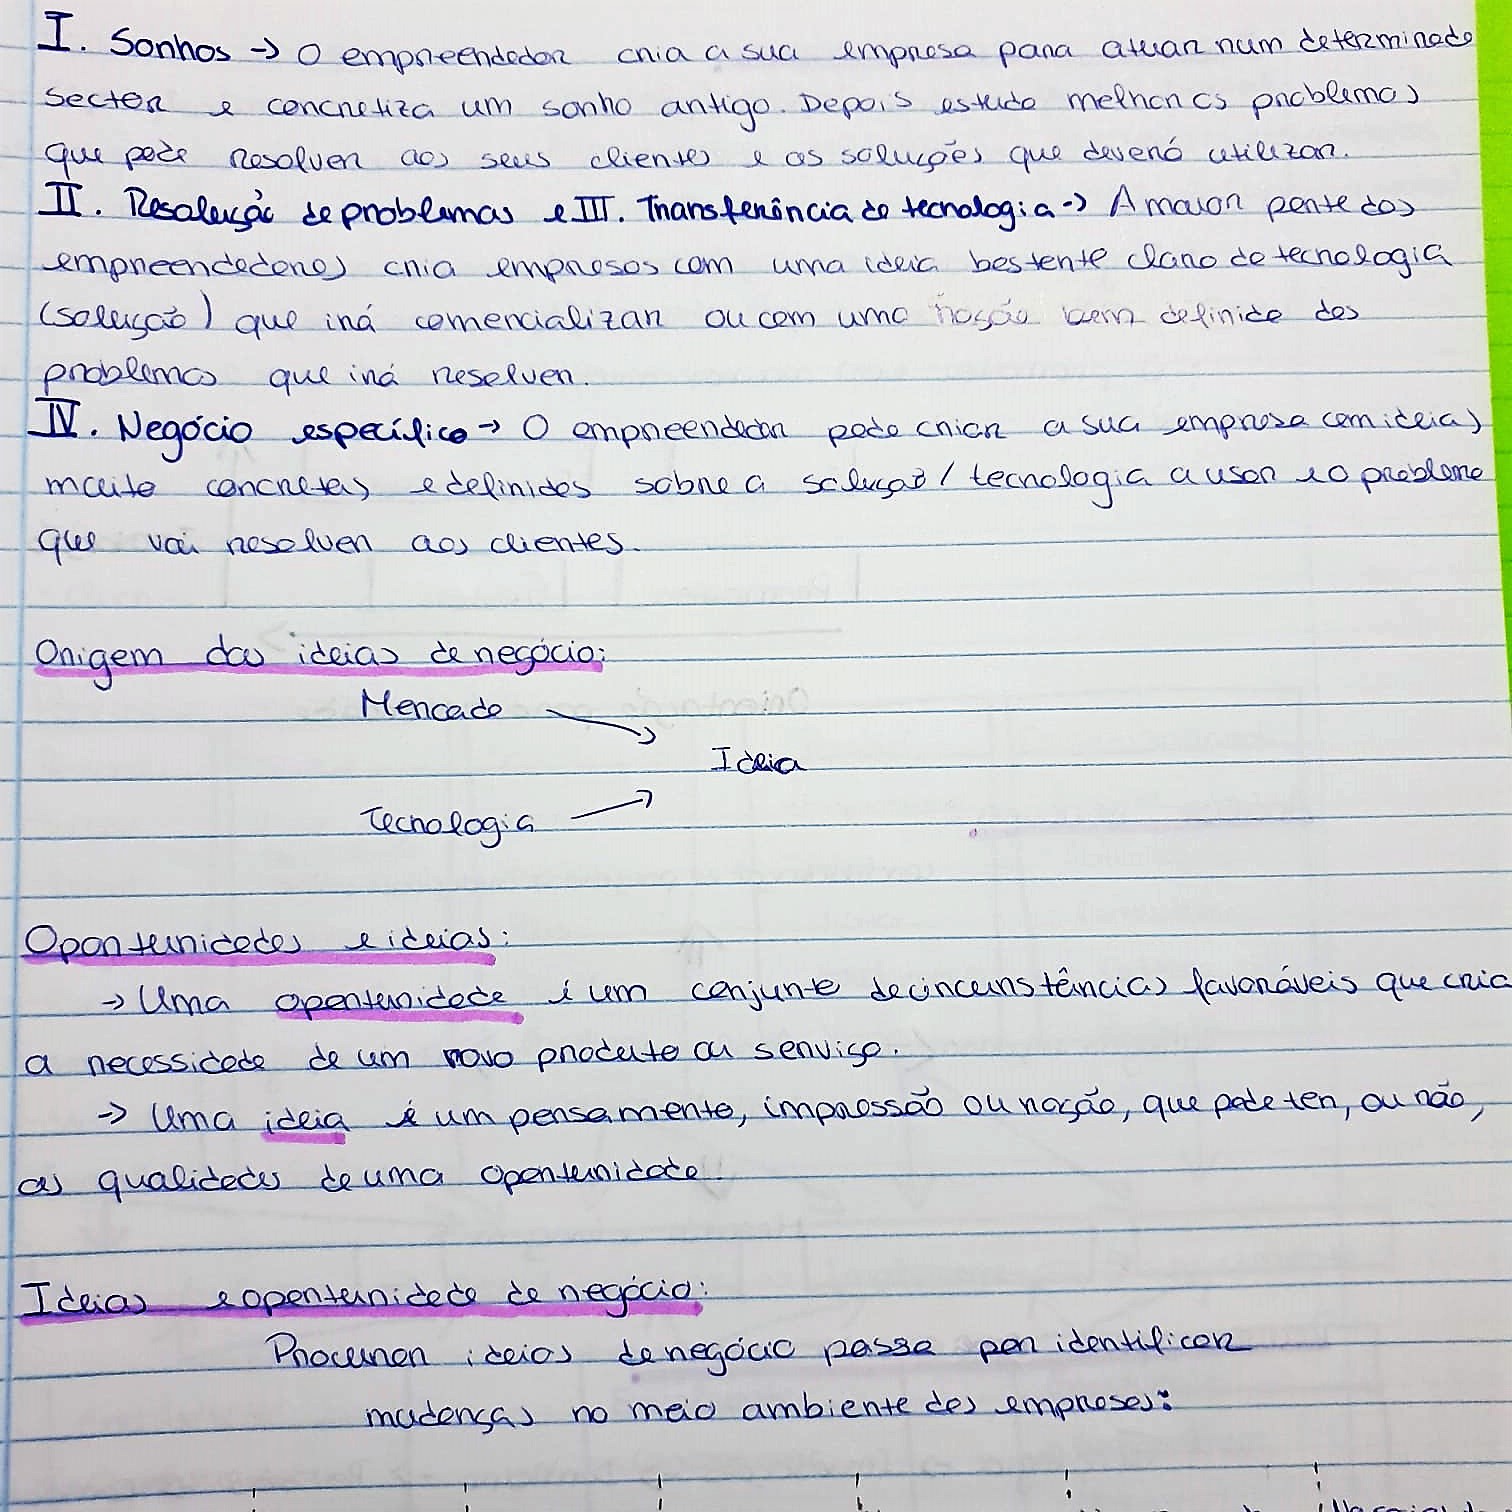 I. Sonhos → O empreendedor cria a sua empresa para atuar num determinado
sector e concretiza um sonho antigo. Depois estuda melhor os problemas
que pode resolver aos seus clientes e as soluções que deverá utilizar.
II. Resolução de problemas e III. Transferência de tecnologia → A maior parte dos
empreendedores cria empresas com uma ideia bastante clara de tecnologia
(solução) que irá comercializar ou com uma noção bem definida dos
problemas que irá resolver.
IV. Negócio específico → O empreendedor pode criar a sua empresa com ideias
muito concretas e definidas sobre a solução / tecnologia a usar e o problema
que vai resolver aos clientes.
Origem das ideias de negócio:
Mercado →
Ideia
Tecnologia →
Oportunidades e ideias:
→ Uma oportunidade é um conjunto de circunstâncias favoráveis que cria
a necessidade de um novo produto ou serviço.
→ Uma ideia é um pensamento, impressão ou noção, que pode ter, ou não,
as qualidades de uma oportunidade.
Ideias e oportunidade de negócio:
Procurar ideias de negócio passa por identificar
mudanças no meio ambiente das empresas: